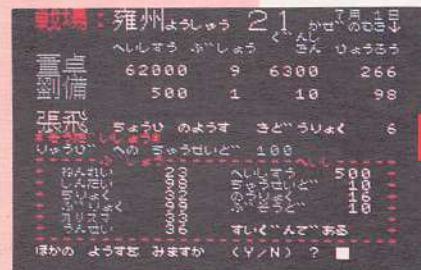 戦場：雍州ようしゅう 21 かぜのむき↓
7月 1日
へいしすう ぶしょう ぐんし きん ひょうろう
董卓 62000 9 6300 266
劉備 500 1 10 98
張飛 ちょうひ のようす きどうりょく 6
りゅうび への ちゅうせいど 100
ねんれい 23 へいしすう 500
しんたい 98 10
ちりょく 16
ぶりょく 99 10
カリスマ 33
うんせい 36 すいぐんである
ほかの ようすを みますか (Y/N) ?